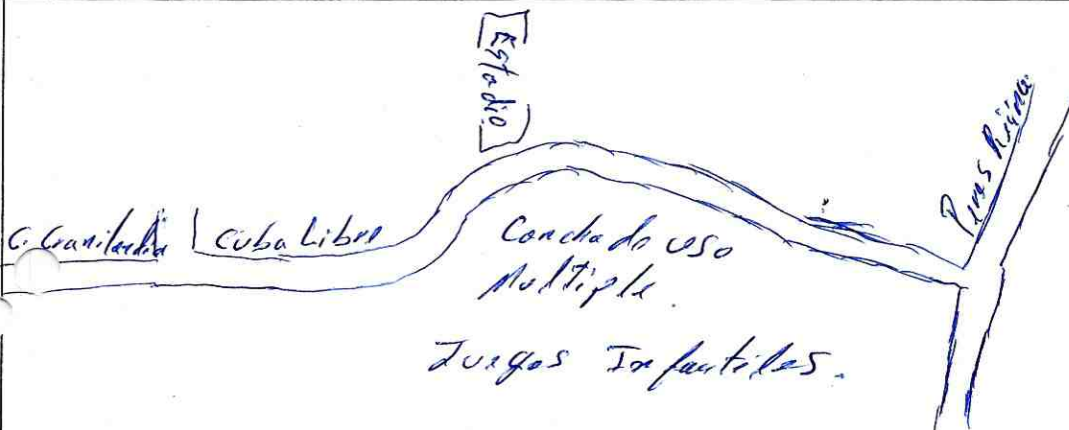 Estadio
C. Granilardia
Cuba Libre
Cancha de uso
Multiple.
Juegos Infantiles.